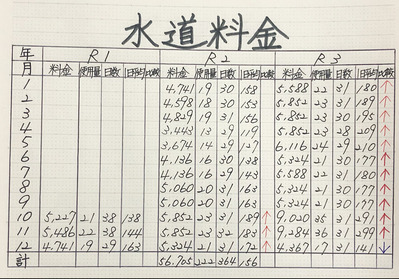 水道料金
年 R1 R2 R3
月 料金 使用量 日数 日平均 比較 料金 使用量 日数 日平均 比較 料金 使用量 日数 日平均 比較
1 4,741 19 30 158 5,588 22 31 180 ↑
2 4,598 18 30 153 5,852 23 31 189 ↑
3 4,829 19 31 156 5,852 23 30 195 ↑
4 3,443 13 29 119 5,852 23 28 209 ↑
5 3,674 14 29 127 6,116 24 29 210 ↑
6 4,136 16 30 138 5,324 21 30 177 ↑
7 4,136 16 29 143 5,588 22 31 180 ↑
8 5,060 20 31 163 5,324 21 30 177 ↑
9 5,060 20 31 163 5,324 21 30 177 ↑
10 5,227 21 38 138 5,852 23 31 189 ↑ 9,020 35 31 291 ↑
11 5,486 22 38 144 5,852 23 32 183 ↑ 9,284 36 31 299 ↑
12 4,741 19 29 163 5,324 21 31 172 ↑ 4,367 17 31 141 ↓
計 56,705 222 364 156